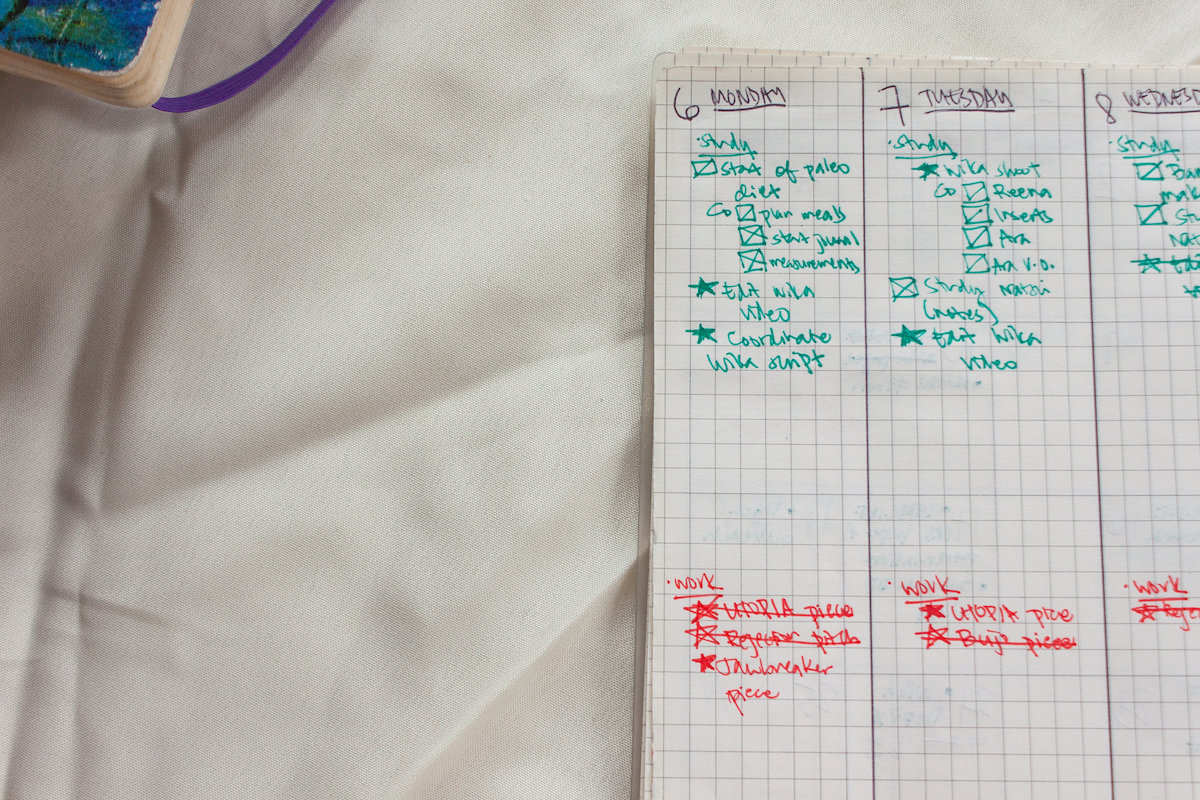 6 MONDAY
• study
start of paleo
diet
plan meals
start jurnal
measurements
Edit wika
video
coordinate
wika script
• work
UTOPIA piece
Rejector pitch
Jawbreaker
piece
7 TUESDAY
• study
wika shoot
Reena
Inserts
Ara
Ara V.O.
Study
(notes)
Edit wika
video
• work
UTOPIA pice
piece
8 WEDNESD
• study
• work